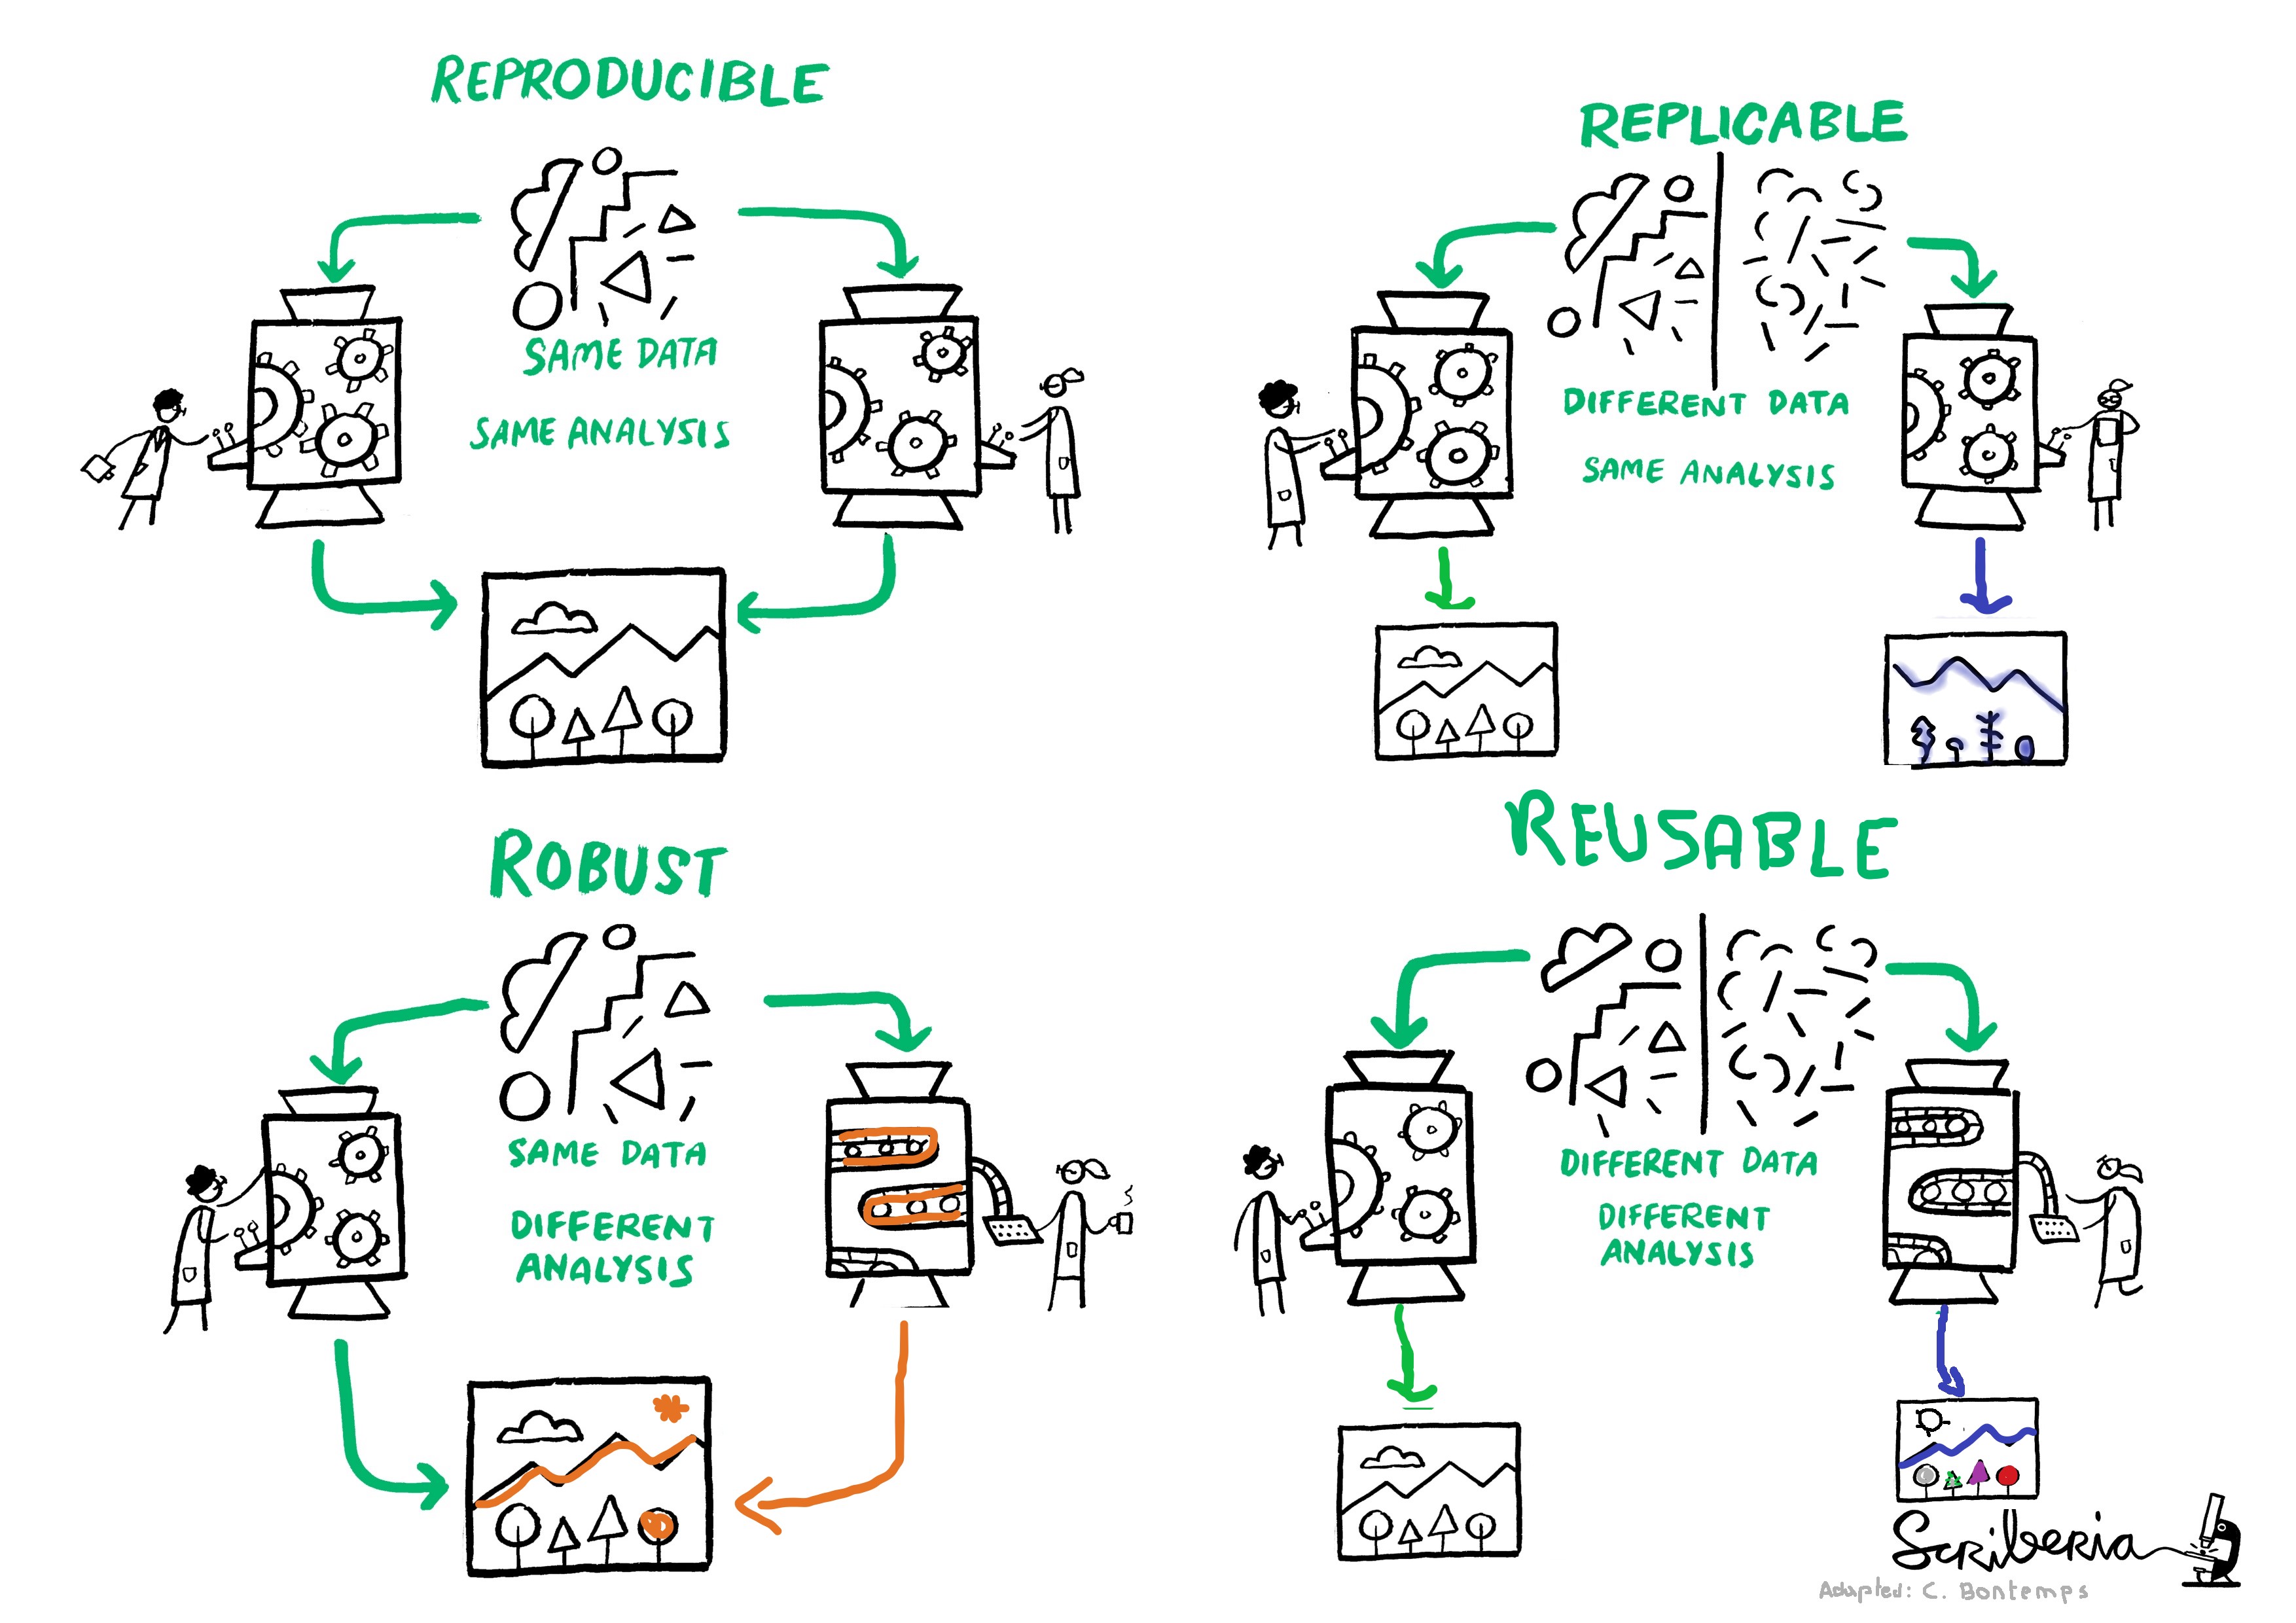 REPRODUCIBLE
SAME DATA
SAME ANALYSIS
REPLICABLE
DIFFERENT DATA
SAME ANALYSIS
ROBUST
SAME DATA
DIFFERENT
ANALYSIS
REUSABLE
DIFFERENT DATA
DIFFERENT
ANALYSIS
Scriberia
Adapted: C. Bontemps